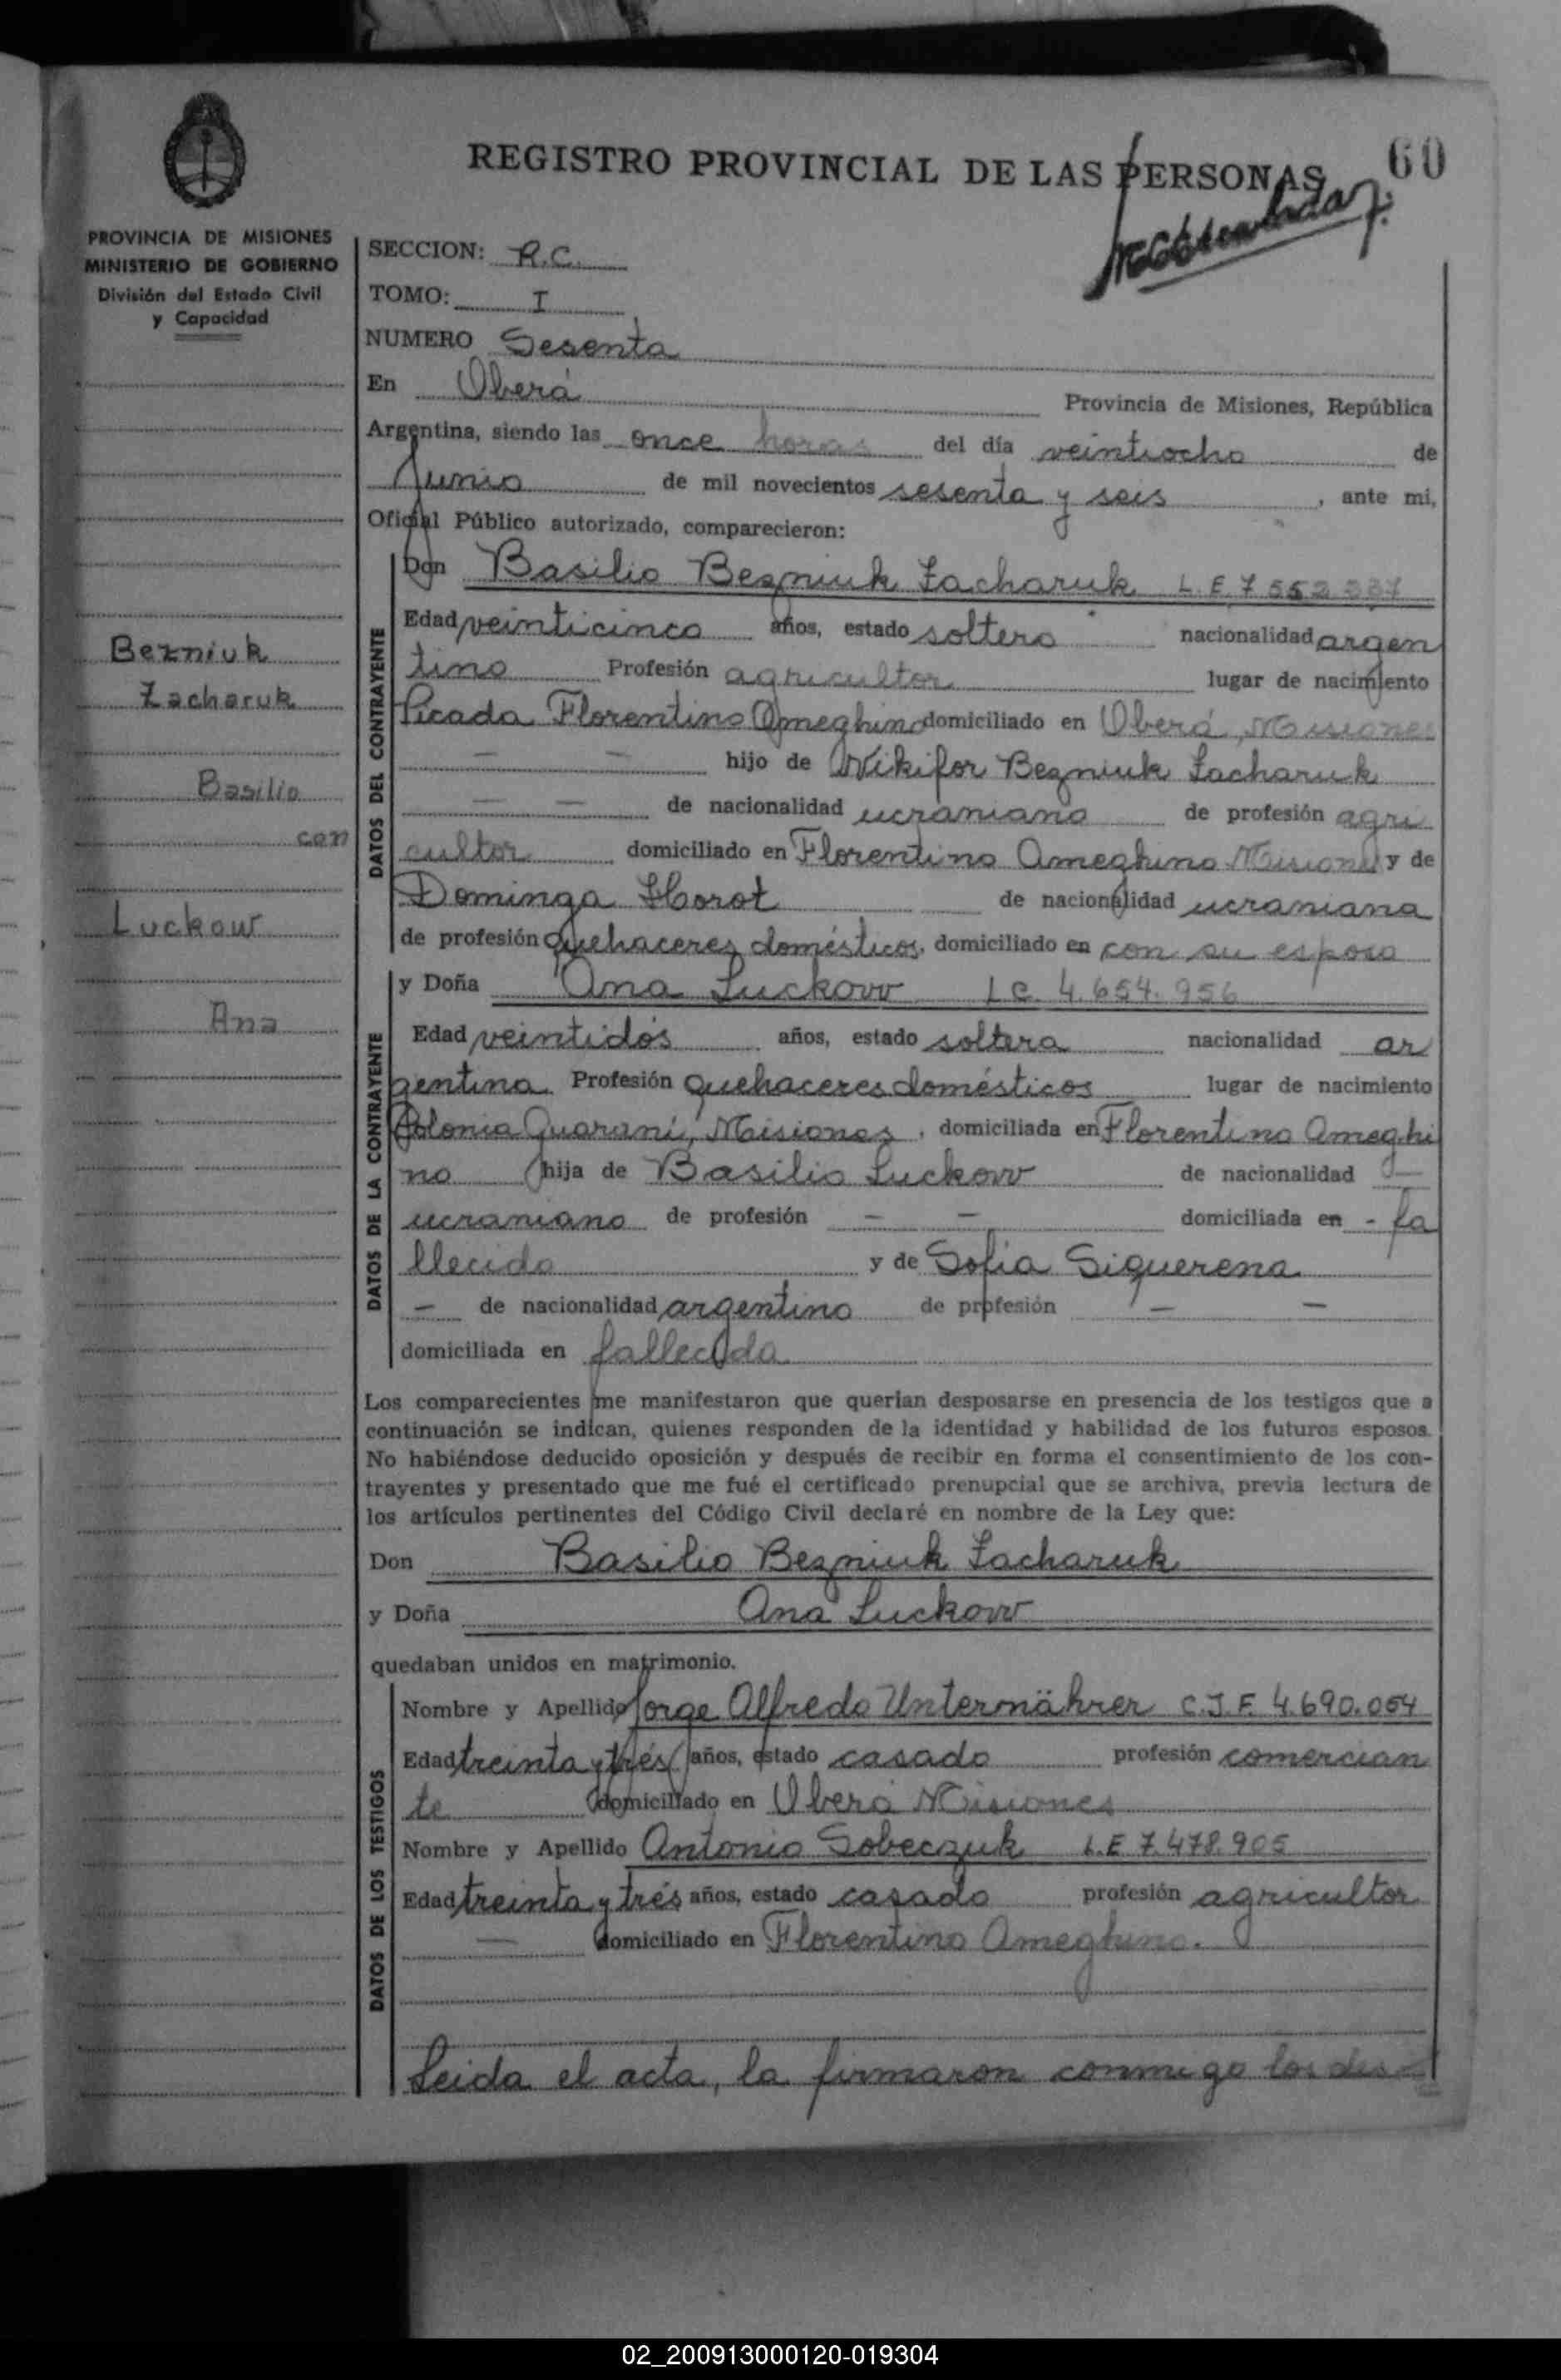 REGISTRO PROVINCIAL DE LAS PERSONAS
60
PROVINCIA DE MISIONES
MINISTERIO DE GOBIERNO
División del Estado Civil
y Capacidad
Bezniuk
Zacharuk
Basilio
con
Luckow
Ana
SECCION: R.C.
TOMO: I
NUMERO Sesenta
En Oberá Provincia de Misiones, República
Argentina, siendo las once horas del día veintiocho de
Junio de mil novecientos sesenta y seis, ante mi,
Oficial Público autorizado, comparecieron:
DATOS DEL CONTRAYENTE
Don Basilio Bezniuk Zacharuk L.E. 7.552.337
Edad veinticinco años, estado soltero nacionalidad argen
tino Profesión agricultor lugar de nacimiento
Picada Florentino Ameghino domiciliado en Oberá, Misiones
— — hijo de Nikifor Bezniuk Zacharuk
— — de nacionalidad ucraniano de profesión agri
cultor domiciliado en Florentino Ameghino Misiones y de
Dominga Horot de nacionalidad ucraniana
de profesión quehaceres domésticos, domiciliado en con su esposo
DATOS DE LA CONTRAYENTE
y Doña Ana Luckow L.C. 4.654.956
Edad veintidós años, estado soltera nacionalidad ar
gentina Profesión quehaceres domésticos lugar de nacimiento
Colonia Guaraní, Misiones, domiciliada en Florentino Ameghi
no hija de Basilio Luckow de nacionalidad —
ucraniano de profesión — — domiciliada en - fa
llecido y de Sofia Siquerena
— de nacionalidad argentino de profesión — —
domiciliada en fallecida
Los comparecientes me manifestaron que querían desposarse en presencia de los testigos que a
continuación se indican, quienes responden de la identidad y habilidad de los futuros esposos.
No habiéndose deducido oposición y después de recibir en forma el consentimiento de los con-
trayentes y presentado que me fué el certificado prenupcial que se archiva, previa lectura de
los artículos pertinentes del Código Civil declaré en nombre de la Ley que:
Don Basilio Bezniuk Zacharuk
y Doña Ana Luckow
quedaban unidos en matrimonio.
DATOS DE LOS TESTIGOS
Nombre y Apellido Jorge Alfredo Unternährer C.I.F. 4.690.054
Edad treinta y trés años, estado casado profesión comercian
te domiciliado en Oberá Misiones
Nombre y Apellido Antonio Sobeczuk L.E 7.478.905
Edad treinta y trés años, estado casado profesión agricultor
— domiciliado en Florentino Ameghino.
Leida el acta, la firmaron conmigo los des
02_200913000120-019304